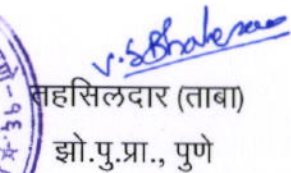 V.S Bhalerao
तहसिलदार (ताबा)
झो.पु.प्रा., पुणे